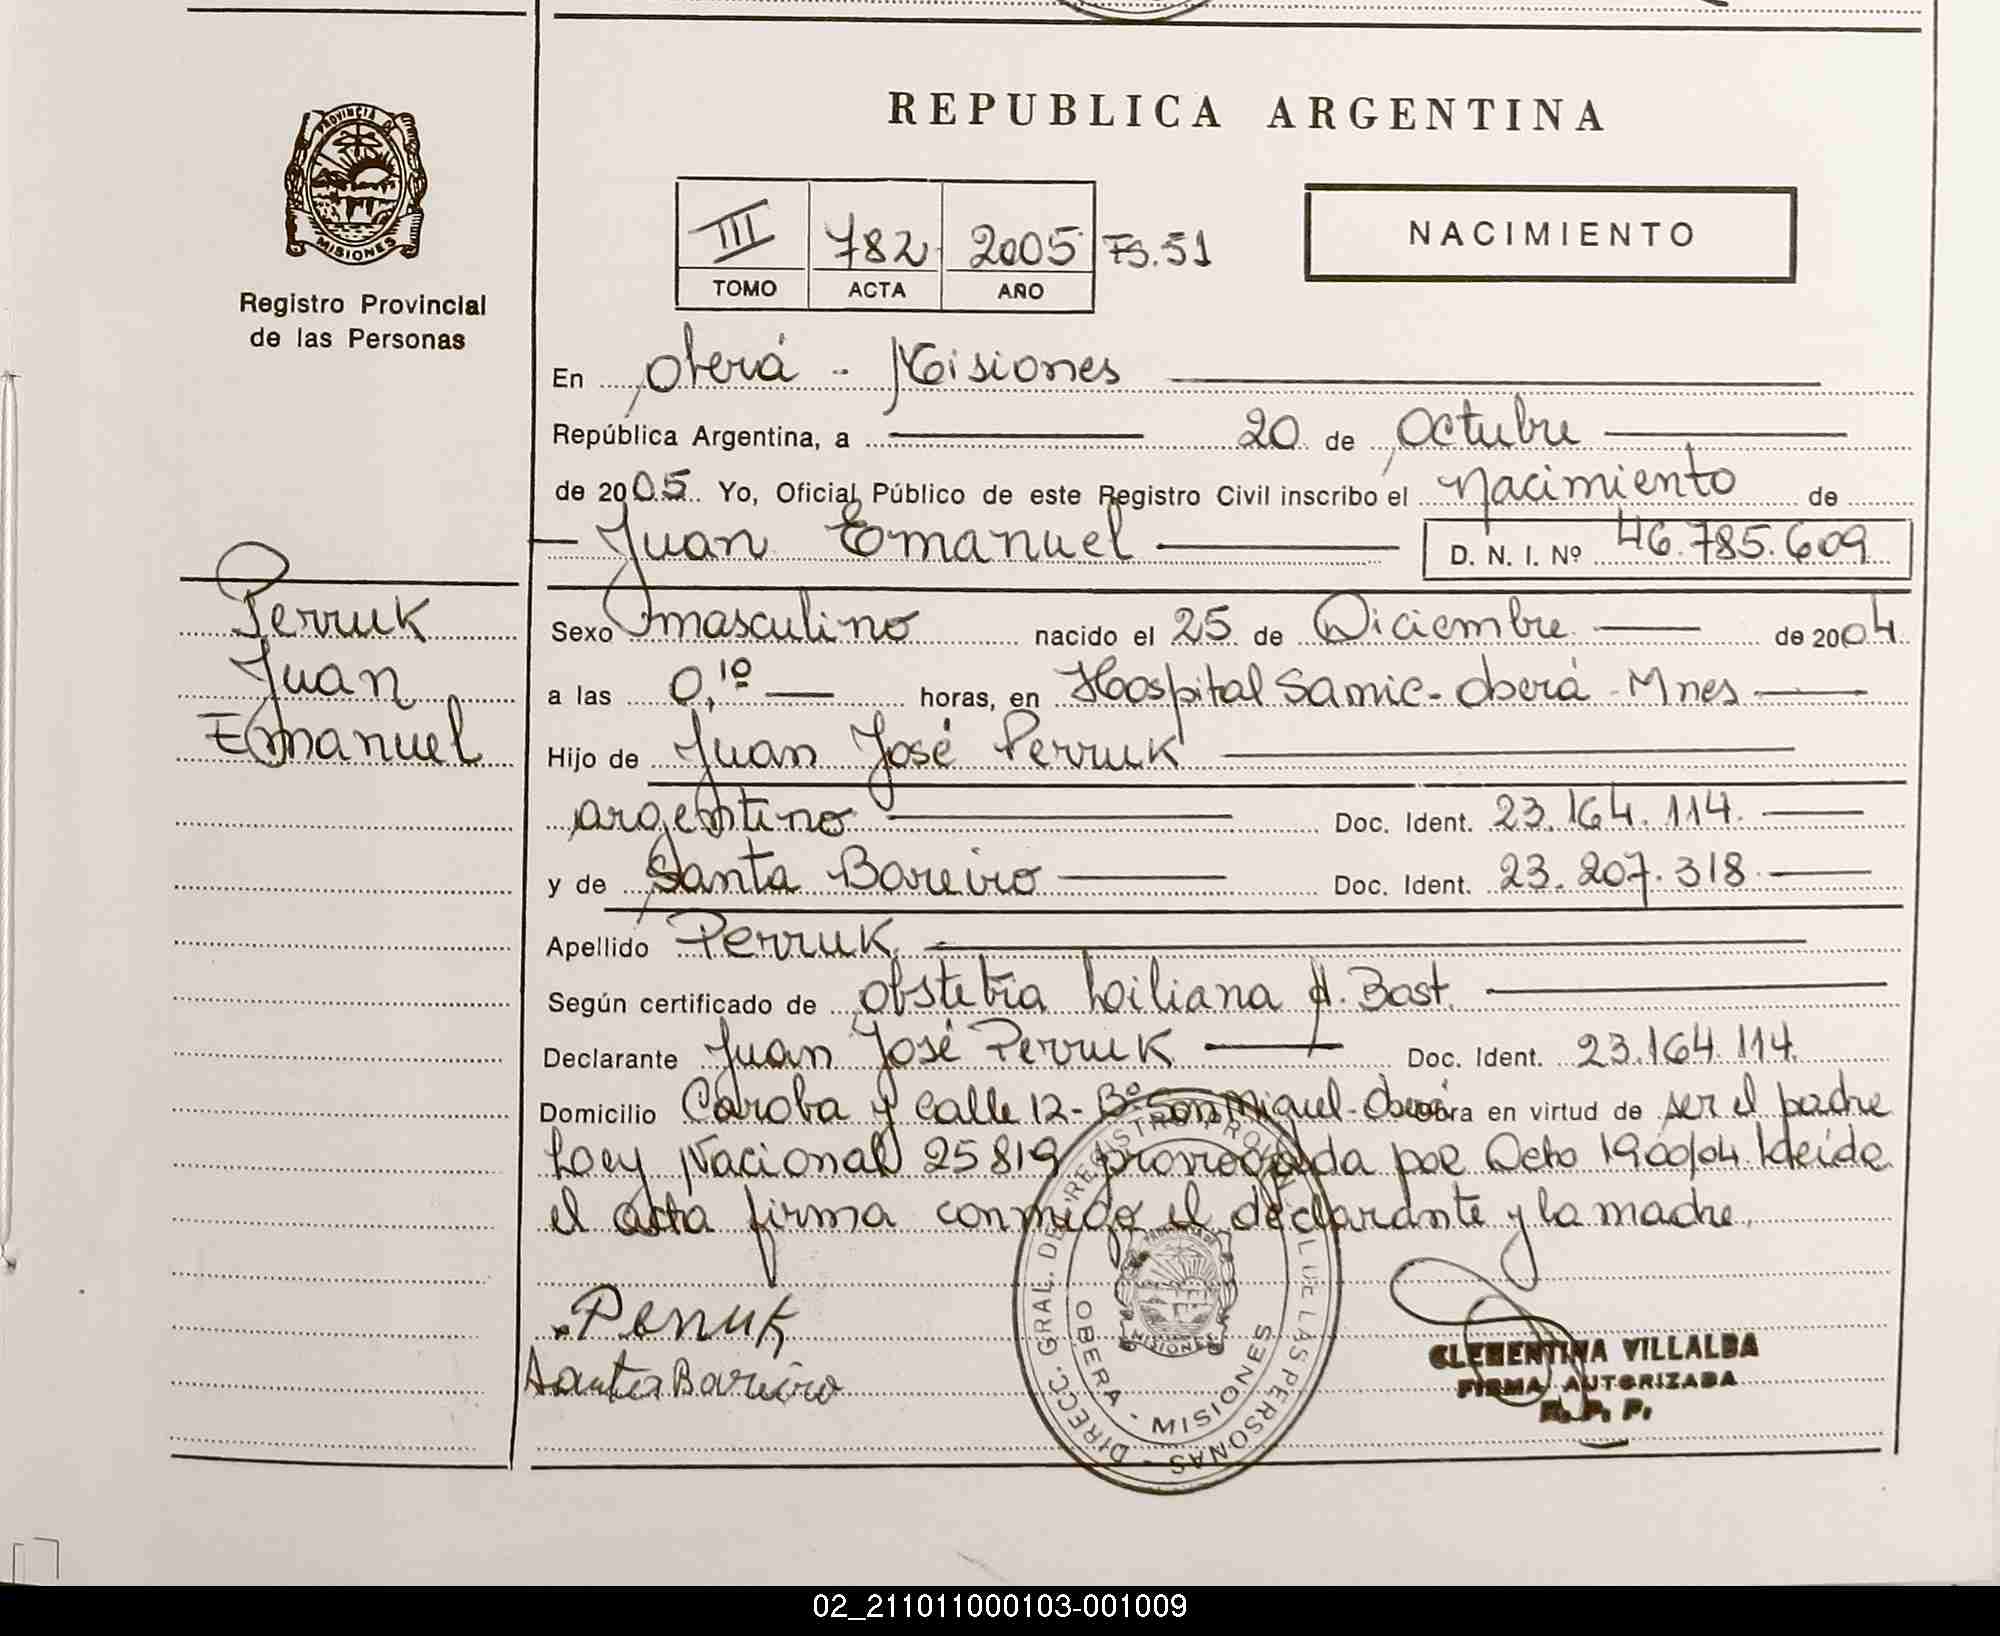 REPUBLICA ARGENTINA
PROVINCIA DE
MISIONES
Registro Provincial
de las Personas
III 782 2005 Fs.51
TOMO ACTA AÑO
NACIMIENTO
En Oberá - Misiones
República Argentina, a 20 de Octubre
de 2005 Yo, Oficial Público de este Registro Civil inscribo el nacimiento de
Juan Emanuel D. N. I. Nº 46.785.609
Perruk
Juan
Emanuel
Sexo masculino nacido el 25 de Diciembre de 2004
a las 0,10 horas, en Hospital Samic-Oberá-Mnes
Hijo de Juan José Perruk
argentino Doc. Ident. 23.164.114.
y de Santa Bareiro Doc. Ident. 23.207.318
Apellido Perruk
Según certificado de Obstetra Liliana A. Bast.
Declarante Juan José Perruk Doc. Ident. 23.164.114.
Domicilio Caroba y calle 12-Bº San Miguel-Oberá obra en virtud de ser el padre
Ley Nacional 25819 por Dcto 1900/04. leída
el acta firma conmigo el declarante y la madre.
Perruk
Santa Bareiro
DIRECC. GRAL. DE REGISTRO PROVINCIAL DE LAS PERSONAS
OBERA - MISIONES
MISIONES
CLEMENTINA VILLALBA
FIRMA AUTORIZADA
R. P. P.
02_211011000103-001009